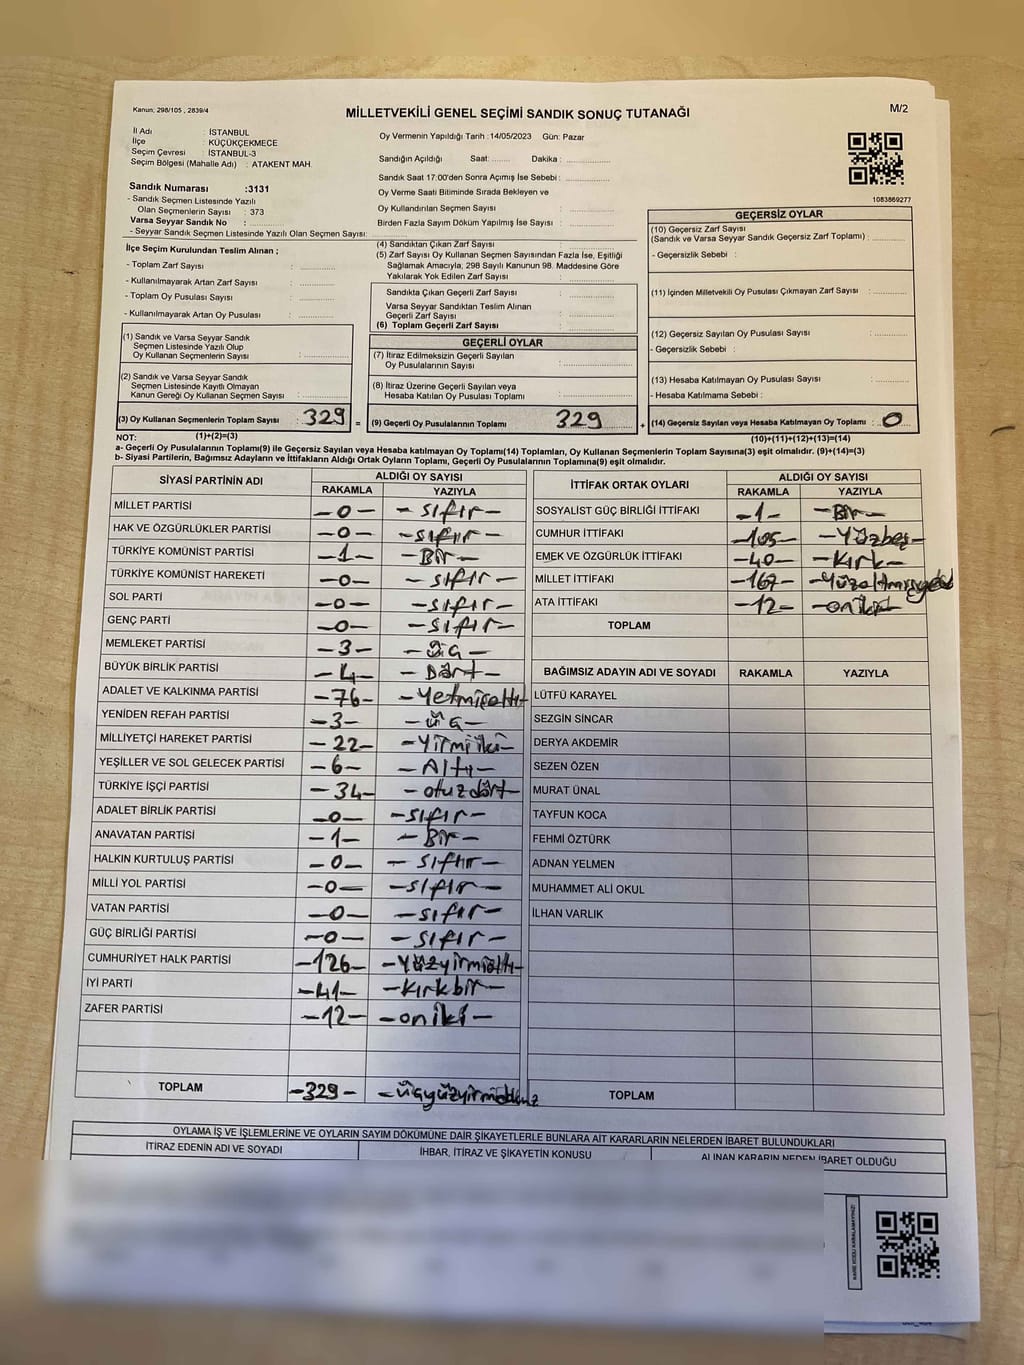 Kanun; 298/105 , 2839/4
MİLLETVEKİLİ GENEL SEÇİMİ SANDIK SONUÇ TUTANAĞI
M/2
İl Adı : İSTANBUL
İlçe : KÜÇÜKÇEKMECE
Seçim Çevresi : İSTANBUL-3
Seçim Bölgesi (Mahalle Adı) : ATAKENT MAH.
Oy Vermenin Yapıldığı Tarih : 14/05/2023 Gün: Pazar
Sandığın Açıldığı Saat: ....... Dakika : ................
Sandık Saat 17:00'den Sonra Açımış İse Sebebi : ................
Oy Verme Saati Bitiminde Sırada Bekleyen ve
Oy Kullandırılan Seçmen Sayısı : ................
Birden Fazla Sayım Döküm Yapılmış İse Sayısı : ................
1083869277
Sandık Numarası :3131
- Sandık Seçmen Listesinde Yazılı
Olan Seçmenlerin Sayısı : 373
Varsa Seyyar Sandık No :
- Seyyar Sandık Seçmen Listesinde Yazılı Olan Seçmen Sayısı:
İlçe Seçim Kurulundan Teslim Alınan ;
- Toplam Zarf Sayısı : .............
- Kullanılmayarak Artan Zarf Sayısı : .............
- Toplam Oy Pusulası Sayısı : .............
- Kullanılmayarak Artan Oy Pusulası : .............
(1) Sandık ve Varsa Seyyar Sandık
Seçmen Listesinde Yazılı Olup
Oy Kullanan Seçmenlerin Sayısı : .............
(2) Sandık ve Varsa Seyyar Sandık
Seçmen Listesinde Kayıtlı Olmayan
Kanun Gereği Oy Kullanan Seçmen Sayısı : .............
(3) Oy Kullanan Seçmenlerin Toplam Sayısı : 329 =
(4) Sandıktan Çıkan Zarf Sayısı : .............
(5) Zarf Sayısı Oy Kullanan Seçmen Sayısından Fazla İse, Eşitliği
Sağlamak Amacıyla, 298 Sayılı Kanunun 98. Maddesine Göre
Yakılarak Yok Edilen Zarf Sayısı : .............
Sandıkta Çıkan Geçerli Zarf Sayısı : .............
Varsa Seyyar Sandıktan Teslim Alınan
Geçerli Zarf Sayısı : .............
(6) Toplam Geçerli Zarf Sayısı : .............
GEÇERLİ OYLAR
(7) İtiraz Edilmeksizin Geçerli Sayılan
Oy Pusulalarının Sayısı : .............
(8) İtiraz Üzerine Geçerli Sayılan veya
Hesaba Katılan Oy Pusulası Toplamı : .............
(9) Geçerli Oy Pusulalarının Toplamı : 329 +
GEÇERSİZ OYLAR
(10) Geçersiz Zarf Sayısı
(Sandık ve Varsa Seyyar Sandık Geçersiz Zarf Toplamı) : .............
- Geçersizlik Sebebi :
(11) İçinden Milletvekili Oy Pusulası Çıkmayan Zarf Sayısı : .............
(12) Geçersiz Sayılan Oy Pusulası Sayısı : .............
- Geçersizlik Sebebi :
(13) Hesaba Katılmayan Oy Pusulası Sayısı : .............
- Hesaba Katılmama Sebebi :
(14) Geçersiz Sayılan veya Hesaba Katılmayan Oy Toplamı : 0
NOT: (1)+(2)=(3)
(10)+(11)+(12)+(13)=(14)
a- Geçerli Oy Pusulalarının Toplamı(9) ile Geçersiz Sayılan veya Hesaba katılmayan Oy Toplamı(14) Toplamları, Oy Kullanan Seçmenlerin Toplam Sayısına(3) eşit olmalıdır. (9)+(14)=(3)
b- Siyasi Partilerin, Bağımsız Adayların ve İttifakların Aldığı Ortak Oyların Toplamı, Geçerli Oy Pusulalarının Toplamına(9) eşit olmalıdır.
SİYASİ PARTİNİN ADI ALDIĞI OY SAYISI
RAKAMLA YAZIYLA
MİLLET PARTİSİ -0- -sıfır-
HAK VE ÖZGÜRLÜKLER PARTİSİ -0- -sıfır-
TÜRKİYE KOMÜNİST PARTİSİ -1- -Bir-
TÜRKİYE KOMÜNİST HAREKETİ -0- -sıfır-
SOL PARTİ -0- -sıfır-
GENÇ PARTİ -0- -sıfır-
MEMLEKET PARTİSİ -3- -üç-
BÜYÜK BİRLİK PARTİSİ -4- -Dört-
ADALET VE KALKINMA PARTİSİ -76- -Yetmişaltı-
YENİDEN REFAH PARTİSİ -3- -üç-
MİLLİYETÇİ HAREKET PARTİSİ -22- -Yirmiiki-
YEŞİLLER VE SOL GELECEK PARTİSİ -6- -Altı-
TÜRKİYE İŞÇİ PARTİSİ -34- -otuzdört-
ADALET BİRLİK PARTİSİ -0- -sıfır-
ANAVATAN PARTİSİ -1- -Bir-
HALKIN KURTULUŞ PARTİSİ -0- -sıfır-
MİLLİ YOL PARTİSİ -0- -sıfır-
VATAN PARTİSİ -0- -sıfır-
GÜÇ BİRLİĞİ PARTİSİ -0- -sıfır-
CUMHURİYET HALK PARTİSİ -126- -Yüzyirmialtı-
İYİ PARTİ -41- -Kırkbir-
ZAFER PARTİSİ -12- -oniki-
TOPLAM -329- -üçyüzyirmidokuz
İTTİFAK ORTAK OYLARI ALDIĞI OY SAYISI
RAKAMLA YAZIYLA
SOSYALİST GÜÇ BİRLİĞİ İTTİFAKI -1- -Bir-
CUMHUR İTTİFAKI -105- -Yüzbeş-
EMEK VE ÖZGÜRLÜK İTTİFAKI -40- -Kırk-
MİLLET İTTİFAKI -167- -Yüzaltmışyedi
ATA İTTİFAKI -12- -oniki-
TOPLAM
BAĞIMSIZ ADAYIN ADI VE SOYADI RAKAMLA YAZIYLA
LÜTFÜ KARAYEL
SEZGİN SİNCAR
DERYA AKDEMİR
SEZEN ÖZEN
MURAT ÜNAL
TAYFUN KOCA
FEHMİ ÖZTÜRK
ADNAN YELMEN
MUHAMMET ALİ OKUL
İLHAN VARLIK
TOPLAM
OYLAMA İŞ VE İŞLEMLERİNE VE OYLARIN SAYIM DÖKÜMÜNE DAİR ŞİKAYETLERLE BUNLARA AİT KARARLARIN NELERDEN İBARET BULUNDUKLARI
İTİRAZ EDENİN ADI VE SOYADI İHBAR, İTİRAZ VE ŞİKAYETİN KONUSU ALINAN KARARIN NEDEN İBARET OLDUĞU
KARE KODU KARALAMAYINIZ!